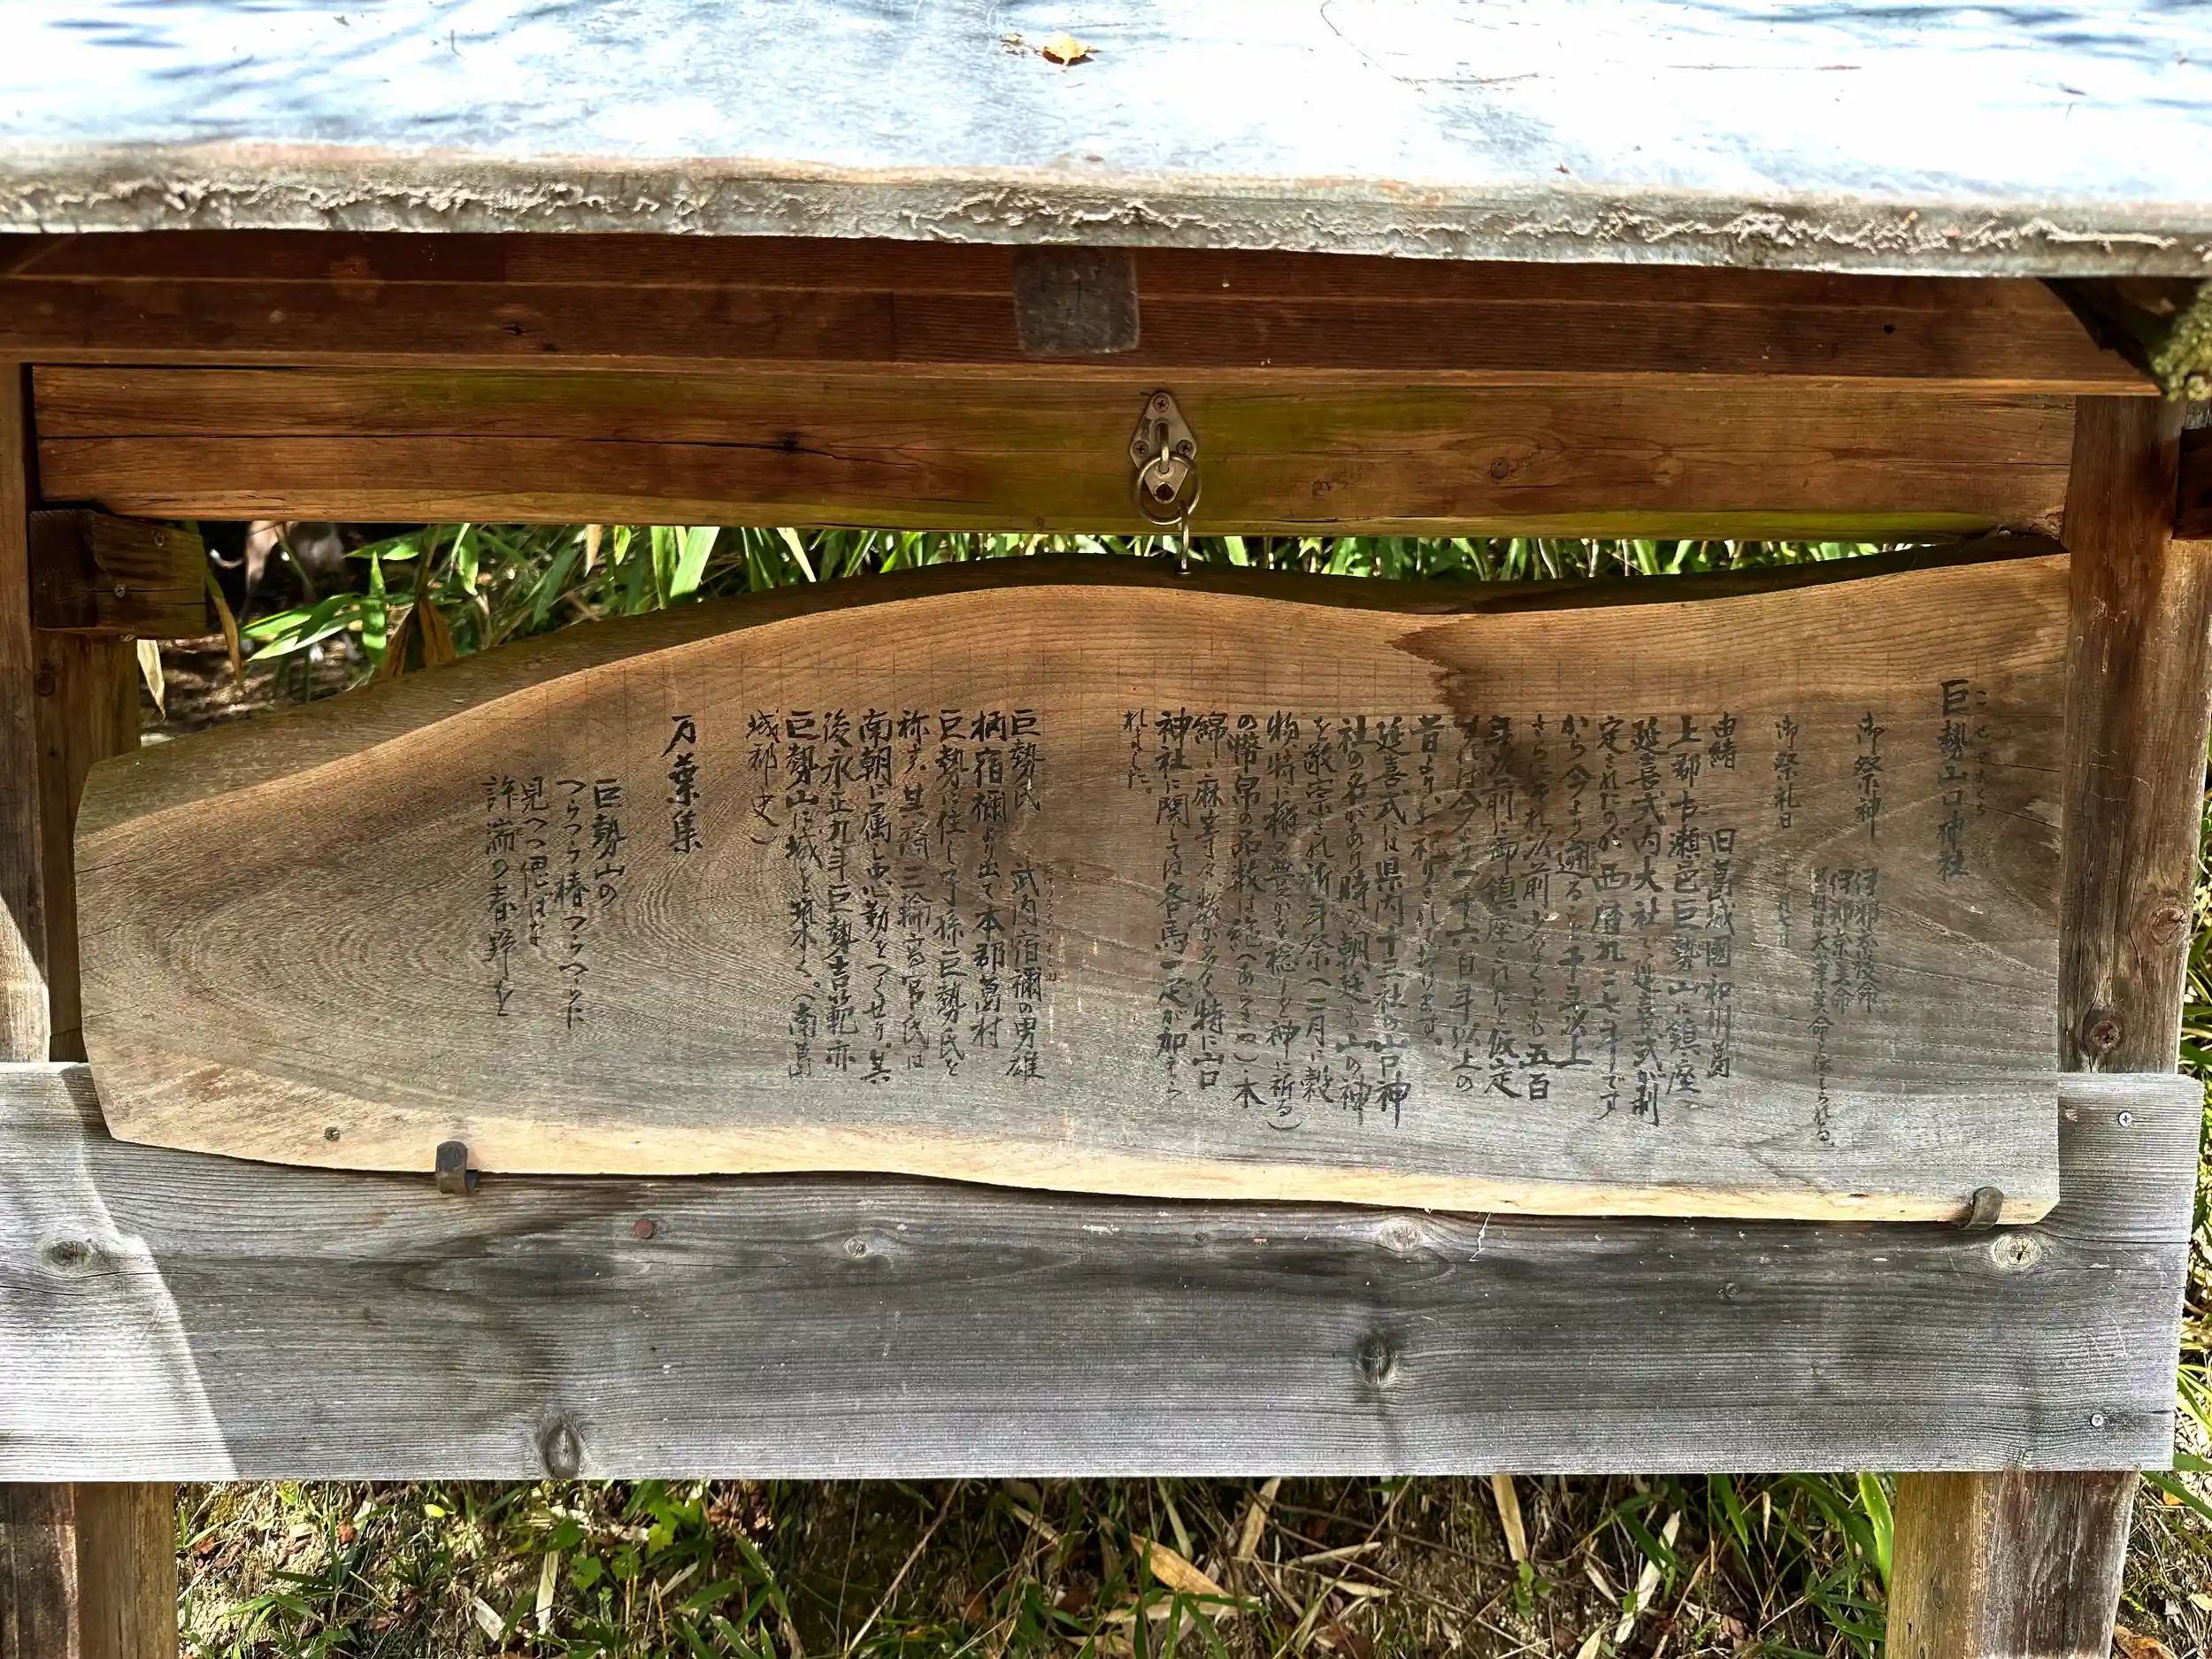 こせやまぐち
巨勢山口神社
御祭神 伊邪奈岐命
伊邪奈美命
命と伝えられる。
御祭礼日
由緒 旧葛城國和州葛
上郡古瀬邑巨勢山に鎮座。
延喜式内大社で、延喜式が制
定されたのが西暦九二七年です
から今より遡ること千年以上
さらにそれ以前少なくとも五百
年以前に御鎮座されたと仮定
すれば今より一千六百年以上の
昔よりお祀りされております。
延喜式には県内十三社の山口神
社の名があり時の朝廷も山の神
を敬崇され祈年祭(二月に穀
物、特に稲の豊かな稔りを神に祈る)
の幣帛の品数は絁(あしぎぬ)・木
綿・麻等々数が多く特に山口
神社に関しては各馬一疋が加えら
れました。
巨勢氏 武内宿禰の男雄
たけうちのすくね
柄宿禰より出て本郡葛村
巨勢に住し子孫巨勢氏を
称す。其裔三輪高宮氏は
南朝に属し忠勤をつくせり。其
後永正九年巨勢吉範亦
巨勢山に城を築く。(南葛
城郡史)
万葉集
巨勢山の
つらつら椿つらつらに
見つつ偲はな
許湍の春野を